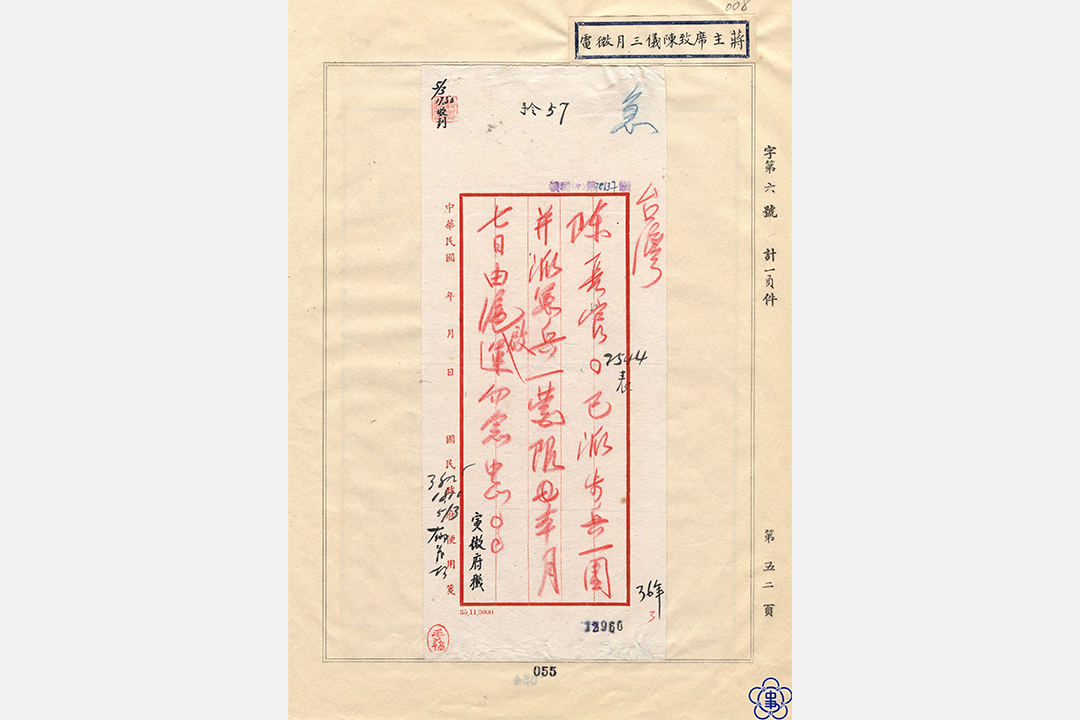 008
蔣主席致陳儀三月微電
字第六號 計一頁件
第五二頁
急
57
5/3
17.50
收到
台灣
陳長官○已派步兵一團
并派憲兵一營限本月
七日由滬啟運勿念中○○
寅微府機
2544
表
36年
3
中華民國 年 月 日 國民政府便用箋
5/3
35,11,3000
12960
055